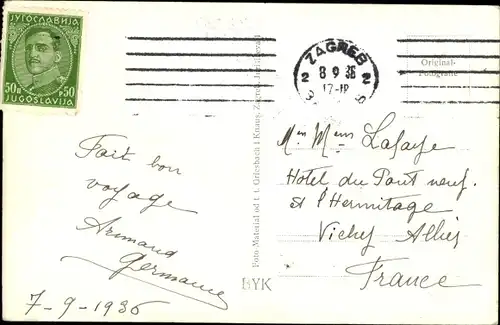 ЈУГОСЛАВИЈА
50П P50
JUGOSLAVIJA
ZAGREB
2 8 9 36 2
17-18
Original-
Fotografie
Fait bon
voyage
Armand
Germaine
7-9-1936
Foto-Material od t. t. Griesbach i Knaus, Zagreb
BYK
Lafaye
Hotel du Pont neuf.
et l'Hermitage
Vichy Allier
France